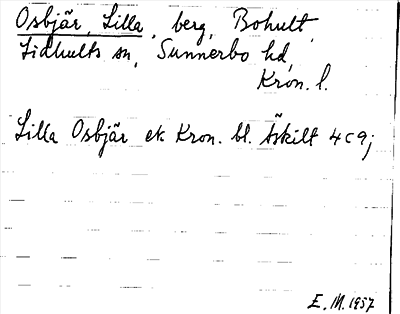 Osbjär, Lilla, berg, Bohult,
Lidhults sn, Sunnerbo hd,
Kron. l.
Lilla Osbjär ek Kron. bl. Äskilt 4 c 9;
E. M. 1957